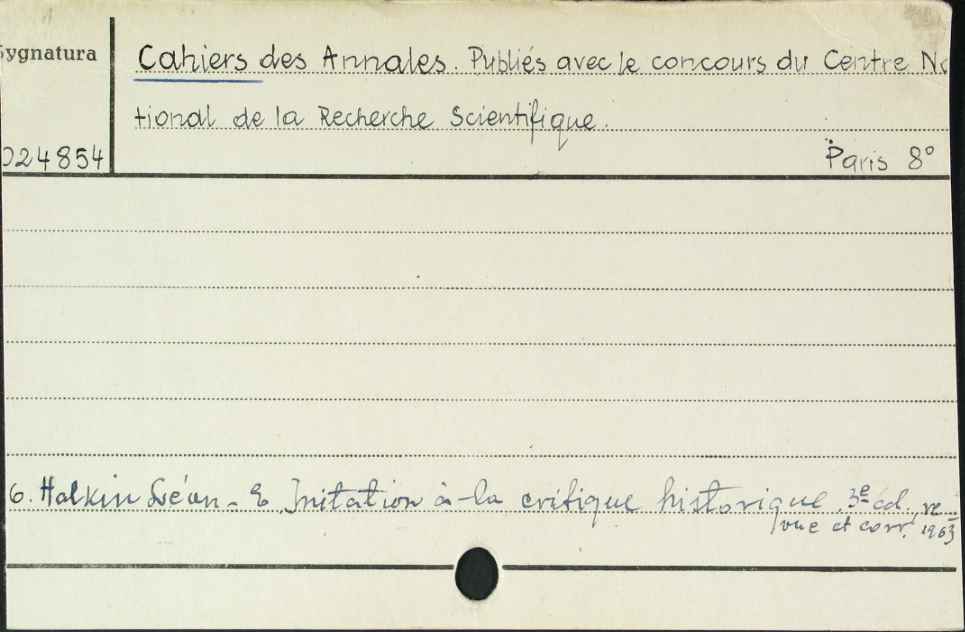 Sygnatura
Cahiers des Annales. Publiés avec le concours du Centre Na
tional de la Recherche Scientifique.
024854
Paris 8°
6. Halkin Léon-E. Initation à la critique historique. 3e éd. re-
vue et corr. 1963